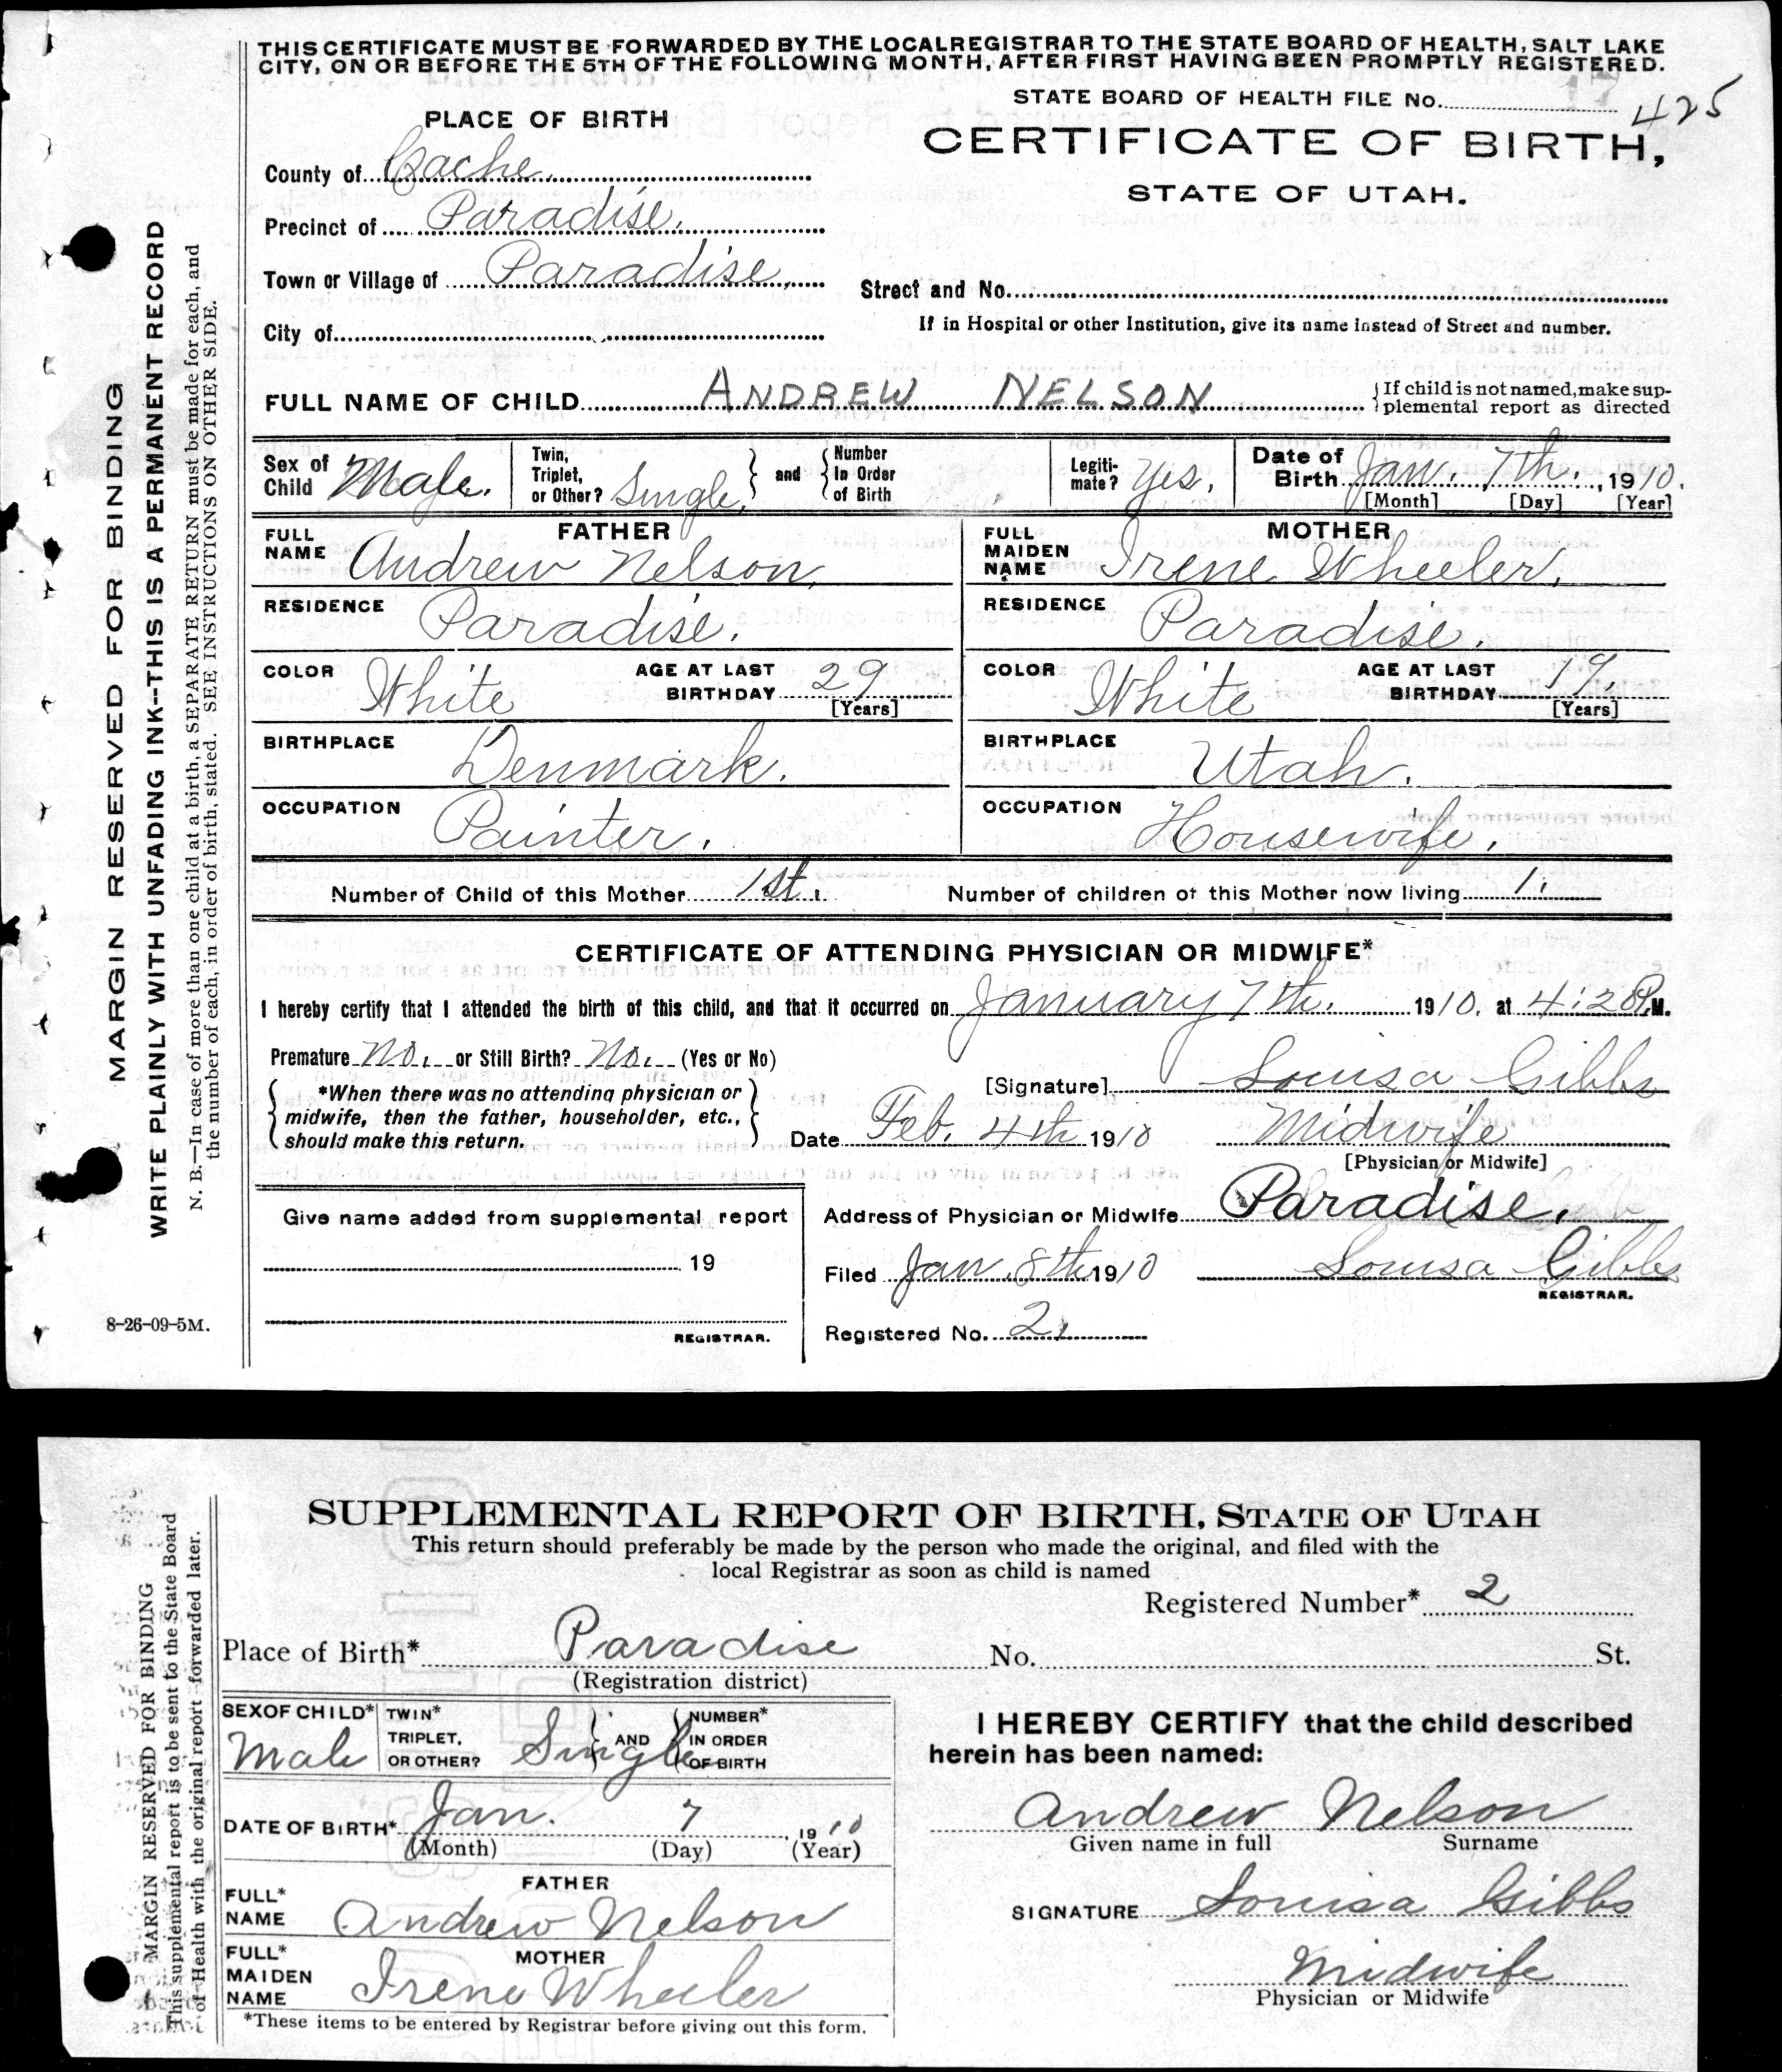 THIS CERTIFICATE MUST BE FORWARDED BY THE LOCAL REGISTRAR TO THE STATE BOARD OF HEALTH, SALT LAKE
CITY, ON OR BEFORE THE 5TH OF THE FOLLOWING MONTH, AFTER FIRST HAVING BEEN PROMPTLY REGISTERED.
STATE BOARD OF HEALTH FILE No. 425
PLACE OF BIRTH
CERTIFICATE OF BIRTH,
STATE OF UTAH.
County of Cache.
Precinct of Paradise.
Town or Village of Paradise,
Street and No.
City of
If in Hospital or other Institution, give its name instead of Street and number.
FULL NAME OF CHILD ANDREW NELSON
If child is not named, make sup-
plemental report as directed
Sex of Child Male. Twin, Triplet, or Other? Single. and Number In Order of Birth Legiti-mate? Yes. Date of Birth Jan. 7th. , 1910.
[Month] [Day] [Year]
FATHER
FULL NAME Andrew Nelson.
RESIDENCE Paradise.
COLOR White AGE AT LAST BIRTHDAY 29
[Years]
BIRTHPLACE Denmark.
OCCUPATION Painter.
MOTHER
FULL MAIDEN NAME Irene Wheeler.
RESIDENCE Paradise.
COLOR White AGE AT LAST BIRTHDAY 19.
[Years]
BIRTHPLACE Utah.
OCCUPATION Housewife.
Number of Child of this Mother 1st. Number of children of this Mother now living 1.
CERTIFICATE OF ATTENDING PHYSICIAN OR MIDWIFE*
I hereby certify that I attended the birth of this child, and that it occurred on January 7th. 1910. at 4:28 P.M.
Premature No. or Still Birth? No. (Yes or No)
*When there was no attending physician or
midwife, then the father, householder, etc.,
should make this return.
[Signature] Louisa Gibbs
Date Feb. 4th 1910 Midwife
[Physician or Midwife]
Give name added from supplemental report
19
REGISTRAR.
Address of Physician or Midwife Paradise.
Filed Jan. 8th 1910 Louisa Gibbs
REGISTRAR.
Registered No. 2.
MARGIN RESERVED FOR BINDING
WRITE PLAINLY WITH UNFADING INK--THIS IS A PERMANENT RECORD
N. B.—In case of more than one child at a birth, a SEPARATE RETURN must be made for each, and
the number of each, in order of birth, stated. SEE INSTRUCTIONS ON OTHER SIDE.
8-26-09-5M.
SUPPLEMENTAL REPORT OF BIRTH, STATE OF UTAH
This return should preferably be made by the person who made the original, and filed with the
local Registrar as soon as child is named
Registered Number* 2
Place of Birth* Paradise No. St.
(Registration district)
SEX OF CHILD* Male TWIN* TRIPLET, OR OTHER? Single AND NUMBER* IN ORDER OF BIRTH
DATE OF BIRTH* Jan. 7 , 1910
(Month) (Day) (Year)
FATHER
FULL* NAME Andrew Nelson
MOTHER
FULL* MAIDEN NAME Irene Wheeler
*These items to be entered by Registrar before giving out this form.
I HEREBY CERTIFY that the child described
herein has been named:
Andrew Nelson
Given name in full Surname
SIGNATURE Louisa Gibbs
Midwife
Physician or Midwife
MARGIN RESERVED FOR BINDING
This supplemental report is to be sent to the State Board
of Health with the original report forwarded later.